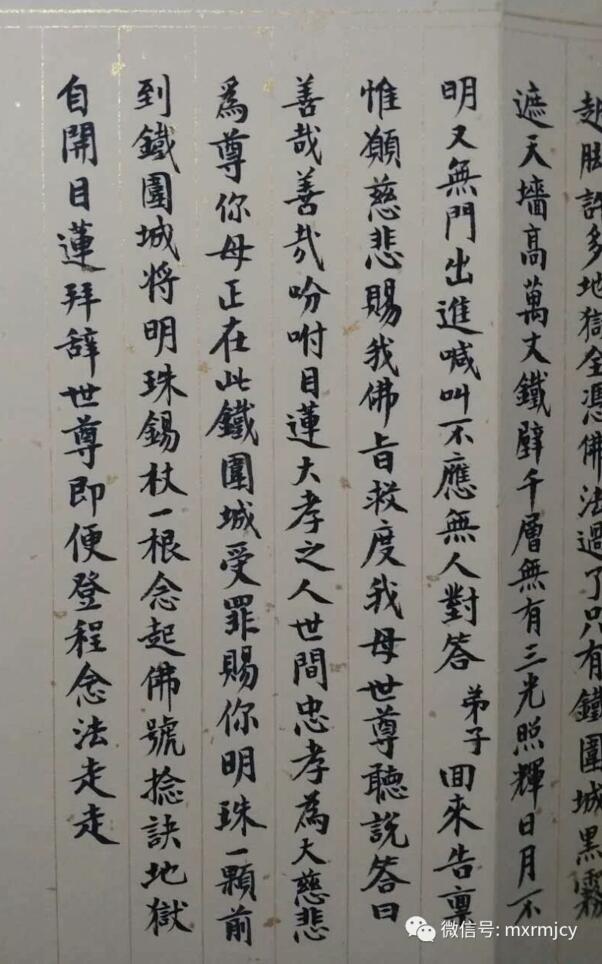 起脚許多地獄全憑佛法過了只有鐵圍城黑霧
遮天墻高萬丈鐵壁千層無有三光照輝日月不
明又無門出進喊叫不應無人對答弟子回來告禀
惟願慈悲賜我佛旨救度我母世尊聽說答曰
善哉善哉吩咐目蓮大孝之人世間忠孝為大慈悲
為尊你母正在此鐵圍城受罪賜你明珠一顆前
到鐵圍城将明珠錫杖一根念起佛號捻訣地獄
自開目蓮拜辞世尊即便登程念法走走
微信号: mxrmjcy